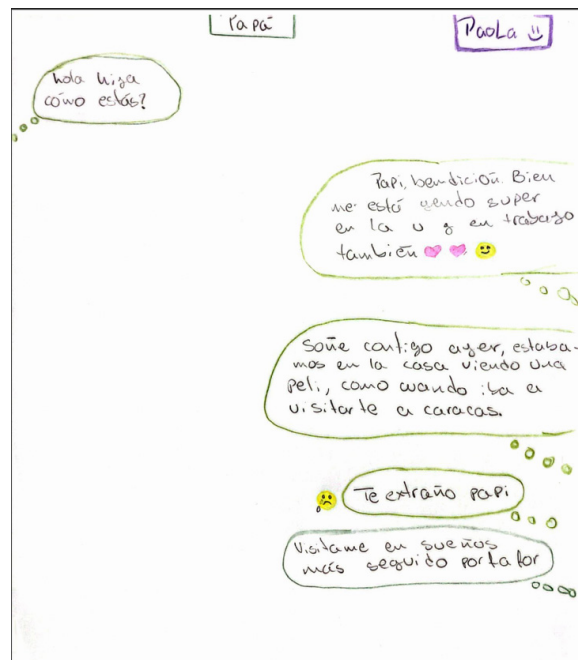 Papá
PaoLa
hola hija
cómo estás?
Papi, bendición. Bien
me está yendo super
en la u y en trabajo
también
Soñe contigo ayer, estaba-
mos en la casa viendo una
peli, como cuando iba a
visitarte a caracas.
Te extraño papi
Visitame en sueños
más seguido porfafor